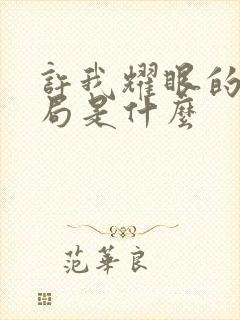 許我耀眼的
局是什麼
范華良